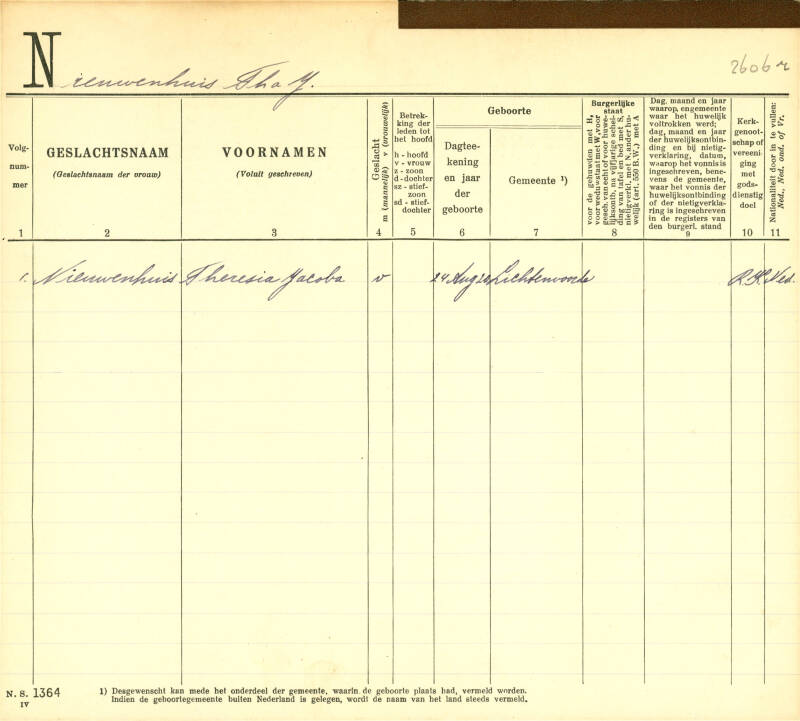 Nieuwenhuis Tha J.
2606 r
Volg-
num-
mer
GESLACHTSNAAM
(Geslachtsnaam der vrouw)
VOORNAMEN
(Voluit geschreven)
Geslacht
m (mannelijk) v (vrouwelijk)
Betrek-
king der
leden tot
het hoofd
h - hoofd
v - vrouw
z - zoon
d - dochter
sz - stief-
zoon
sd - stief-
dochter
Geboorte
Dagtee-
kening
en jaar
der
geboorte
Gemeente ¹)
Burgerlijke
staat
voor de gehuwden met H,
voor weduwstaat met W, voor
gesch. van echt of voor huwe-
lijksontb. na vijfjarige schei-
ding van tafel en bed met S,
nietigverkl. met N, ander hu-
welijk (art. 550 B.W.) met A
Dag, maand en jaar
waarop, en gemeente
waar het huwelijk
voltrokken werd;
dag, maand en jaar
der huwelijksontbin-
ding en bij nietig-
verklaring, datum,
waarop het vonnis is
ingeschreven, bene-
vens de gemeente,
waar het vonnis der
huwelijksontbinding
of der nietigverkla-
ring is ingeschreven
in de registers van
den burgerl. stand
Kerk-
genoot-
schap of
vereeni-
ging
met
gods-
dienstig
doel
Nationaliteit door in te vullen:
Ned., Ned. ond. of Vr.
1 2 3 4 5 6 7 8 9 10 11
1. Nieuwenhuis Theresia Jacoba v 24 Aug 20 Lichtenvoorde R.K. Ned.
N. S. 1364
IV
1) Desgewenscht kan mede het onderdeel der gemeente, waarin de geboorte plaats had, vermeld worden.
Indien de geboortegemeente buiten Nederland is gelegen, wordt de naam van het land steeds vermeld.